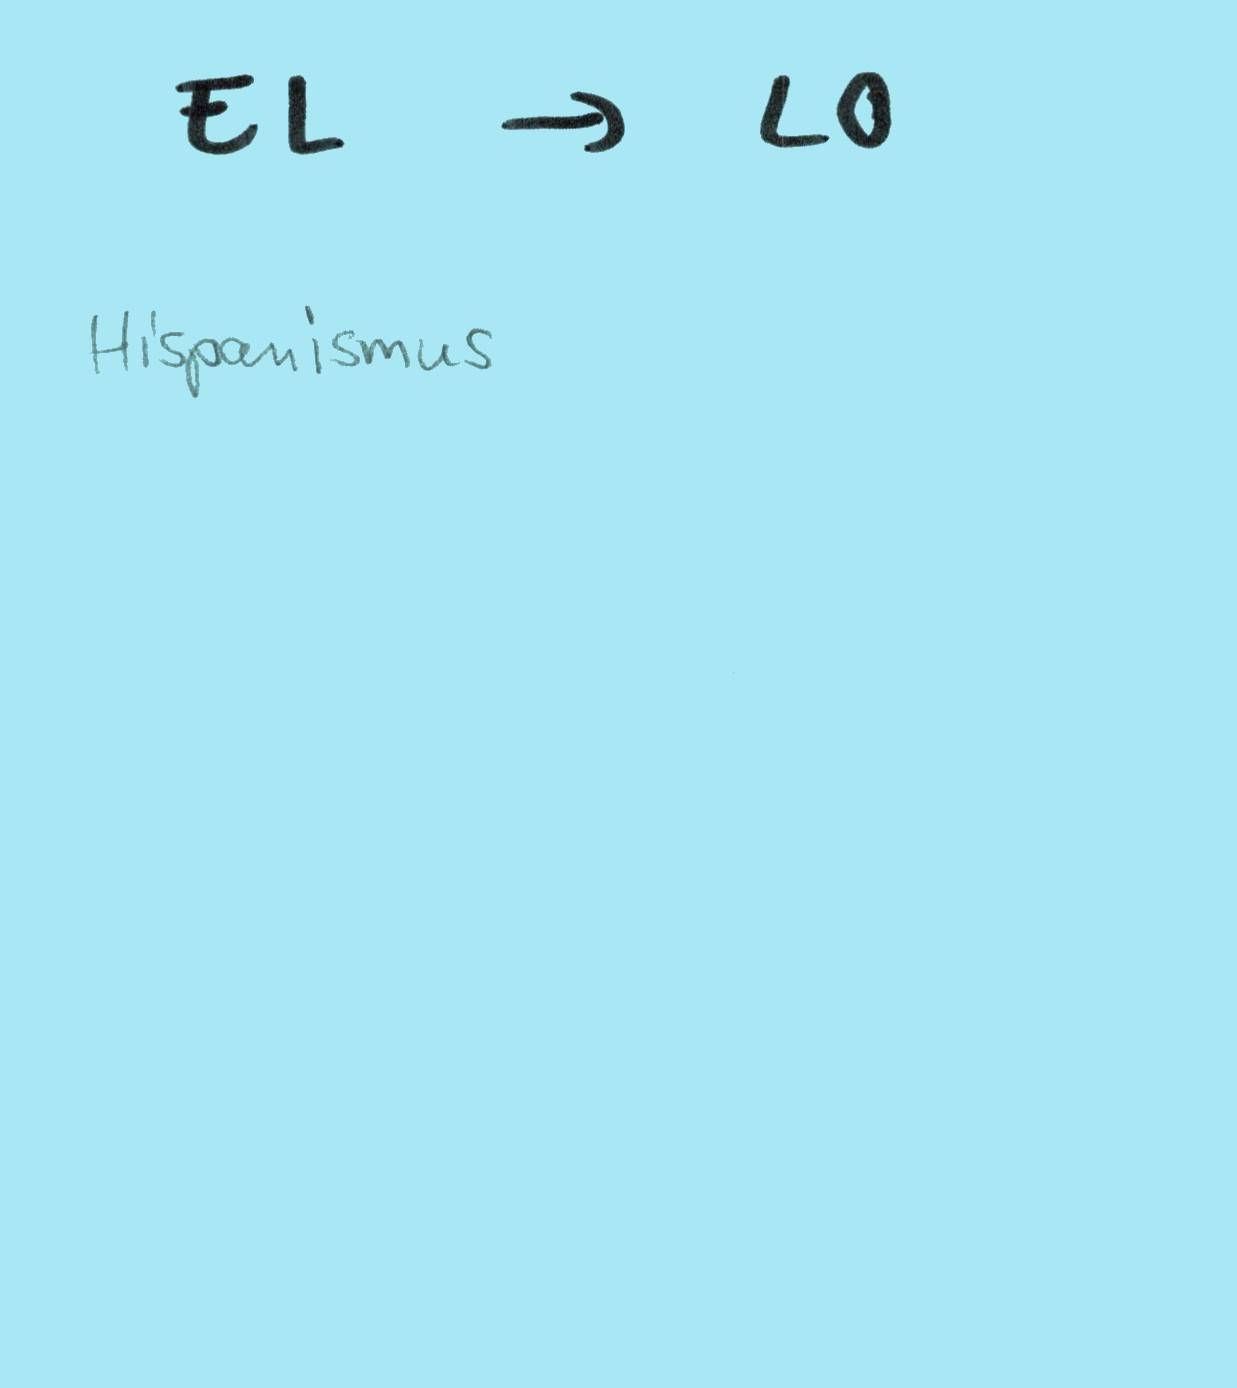 EL → LO
Hispanismus